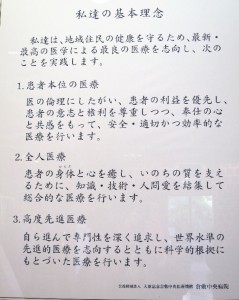 私達の基本理念
私達は、地域住民の健康を守るため、最新・
最高の医学による最良の医療を志向し、次の
ことを実践します。
1.患者本位の医療
医の倫理にしたがい、患者の利益を優先し、
患者の意志と権利を尊重しつつ、奉仕の心
と共感をもって、安全・適切かつ効率的な
医療を行います。
2.全人医療
患者の身体と心を癒し、いのちの質を支え
るために、知識・技術・人間愛を結集して
総合的な医療を行います。
3.高度先進医療
自ら進んで専門性を深く追求し、世界水準の
先進的医療を志向するとともに科学的根拠に
もとづいた医療を行います。